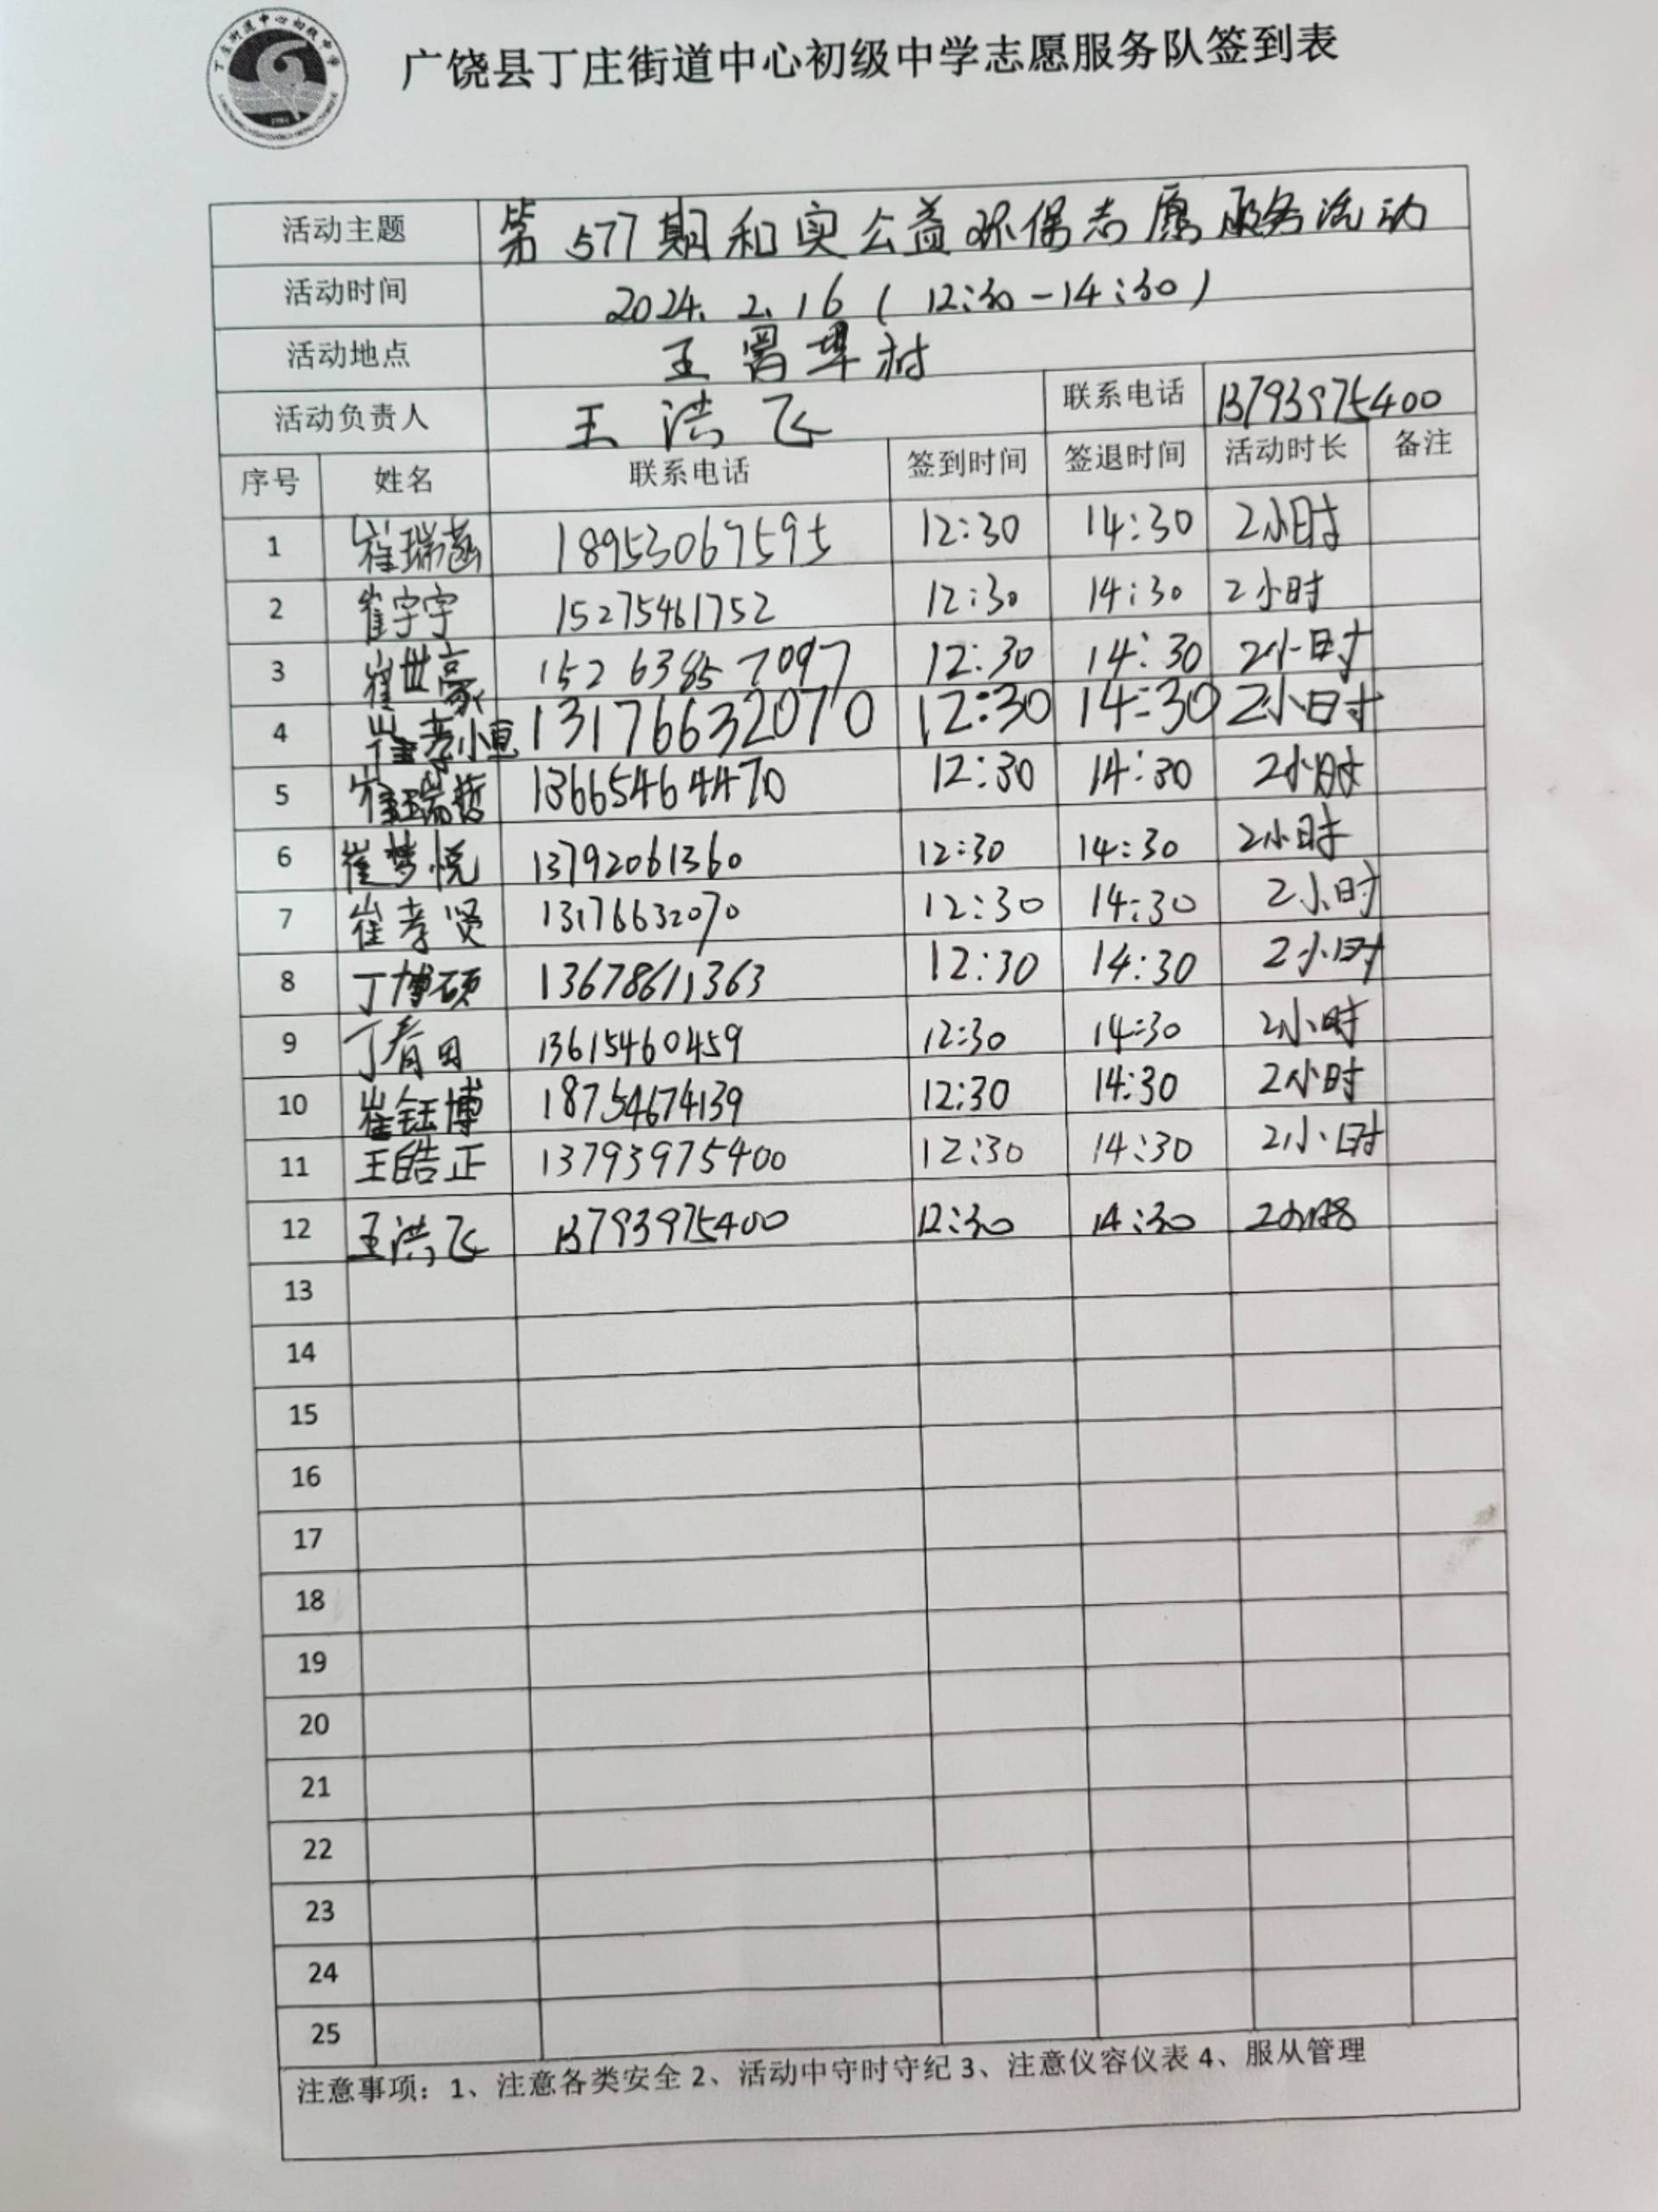 丁庄街道中心初级中学
广饶县丁庄街道中心初级中学志愿服务队签到表
活动主题 第577期和实公益环保志愿服务活动
活动时间 2024.2.16(12:30-14:30)
活动地点 王署埠村
活动负责人 王洪飞 联系电话 13793975400
序号 姓名 联系电话 签到时间 签退时间 活动时长 备注
1 崔瑞菡 18953067595 12:30 14:30 2小时
2 崔宇宇 15275461752 12:30 14:30 2小时
3 崔世豪 15263857097 12:30 14:30 2小时
4 崔孝 13176632070 12:30 14:30 2小时
5 崔瑞哲 13665464470 12:30 14:30 2小时
6 崔梦悦 13792061360 12:30 14:30 2小时
7 崔孝贤 13176632070 12:30 14:30 2小时
8 丁博硕 13678611363 12:30 14:30 2小时
9 丁 田 13615460459 12:30 14:30 2小时
10 崔钰博 18754674139 12:30 14:30 2小时
11 王皓正 13793975400 12:30 14:30 2小时
12 王洪飞 13793975400 12:30 14:30 2小时
13
14
15
16
17
18
19
20
21
22
23
24
25
注意事项：1、注意各类安全 2、活动中守时守纪 3、注意仪容仪表 4、服从管理